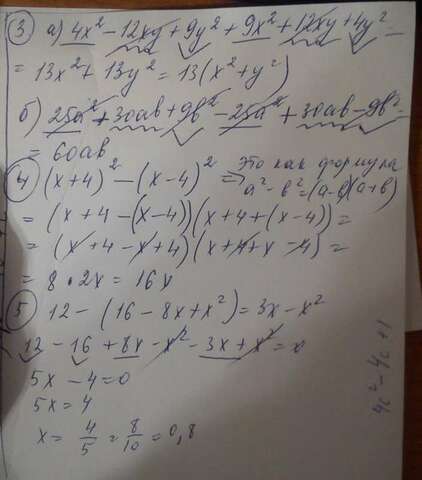 ③ а) 4x² - 12xy + 9y² + 9x² + 12xy + 4y² =
= 13x² + 13y² = 13(x² + y²)
б) 25a² + 30ab + 9b² - 25a² + 30ab - 9b² =
= 60ab
④ (x+4)² - (x-4)² => это как формула
a² - b² = (a-b)(a+b)
= (x+4-(x-4))(x+4+(x-4)) =
= (x+4-x+4)(x+4+x-4) =
= 8·2x = 16x
⑤ 12 - (16 - 8x + x²) = 3x - x²
12 - 16 + 8x - x² - 3x + x² = 0
5x - 4 = 0
5x = 4
x = 4/5 = 8/10 = 0,8
4c² - 4c + 1